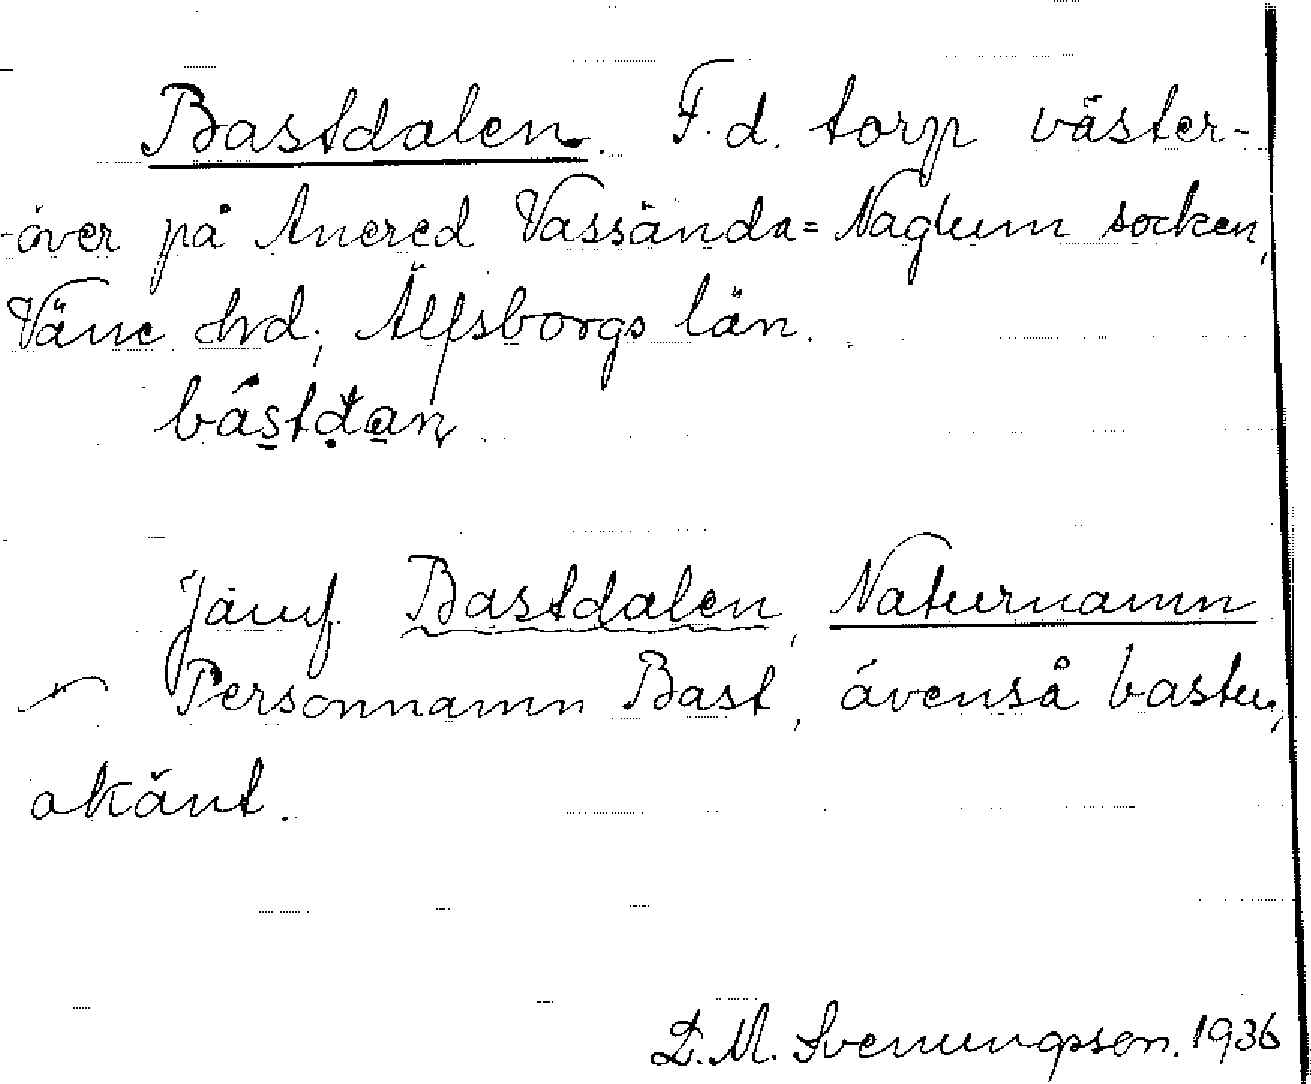 Bastdalen. F.d. torp väster-
-över på Anered Vassända=Naglum socken,
Väne hrd; Älfsborgs län.
Jämf. Bastdalen, Naturnamn
Personnamn Bast, ävenså bastu,
okänt.
D. M. Svenungsson. 1936